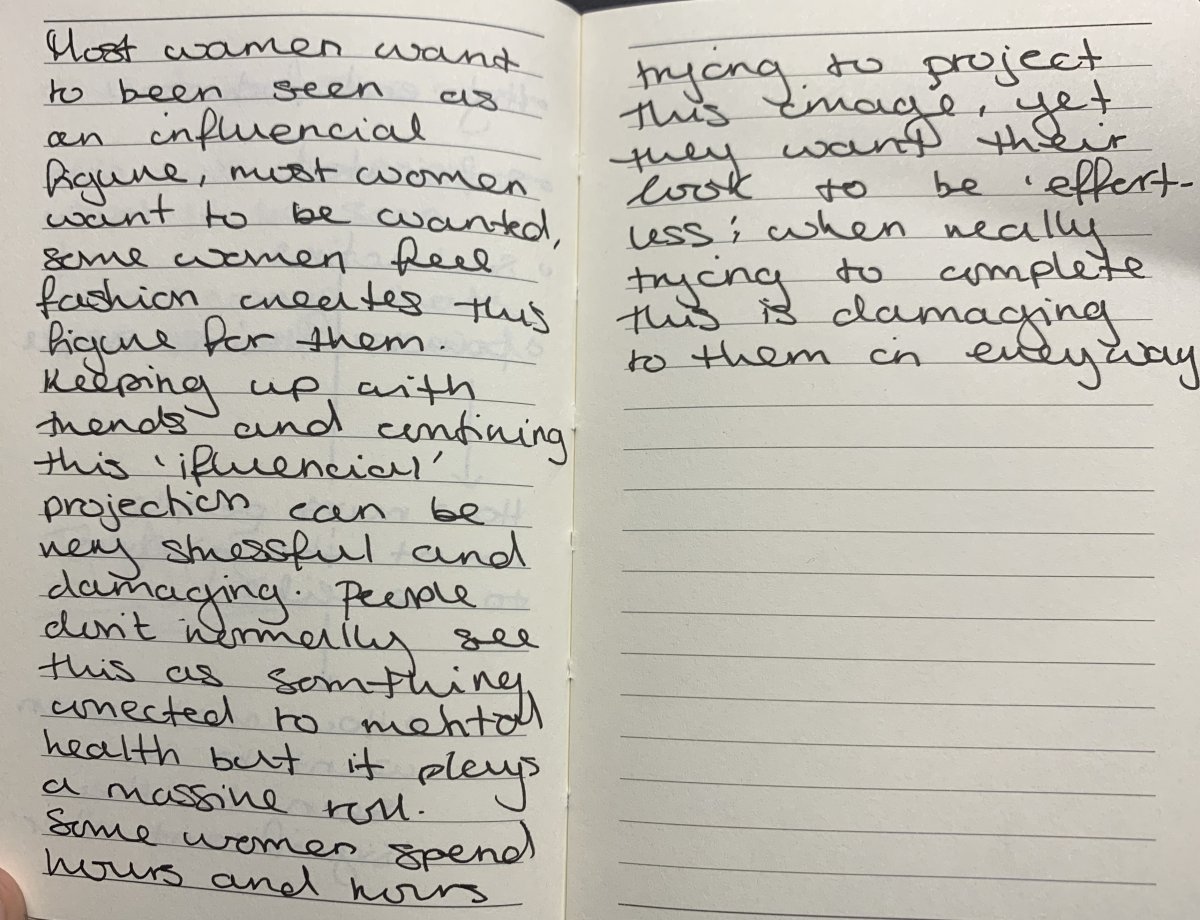 Most women want
to been seen as
an influencial
figure, most women
want to be wanted,
some women feel
fashion creates this
figure for them.
Keeping up with
trends and contining
this 'ifluencial'
projection can be
very stressful and
damaging. People
don't normally see
this as somthing
conected to mental
health but it plays
a massive roll.
Some women spend
hours and hours
trying to project
this image, yet
they want their
look to be 'effort-
less; when really
trying to complete
this is damaging
to them in everyway